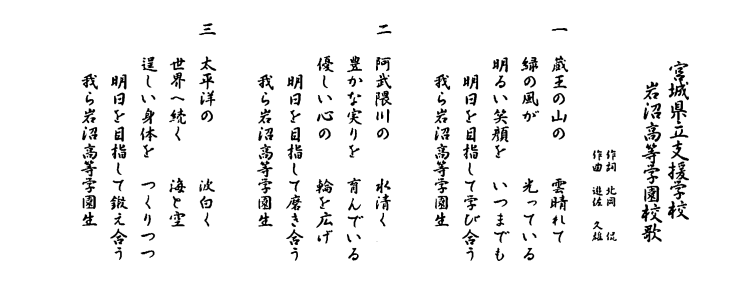 宮城県立支援学校
岩沼高等学園校歌
作詞 北岡 侃
作曲 進佐 久雄
一 蔵王の山の 雲晴れて
緑の風が 光っている
明るい笑顔を いつまでも
明日を目指して学び合う
我ら岩沼高等学園生
二 阿武隈川の 水清く
豊かな実りを 育んでいる
優しい心の 輪を広げ
明日を目指して磨き合う
我ら岩沼高等学園生
三 太平洋の 波白く
世界へ続く 海と空
逞しい身体を つくりつつ
明日を目指して鍛え合う
我ら岩沼高等学園生